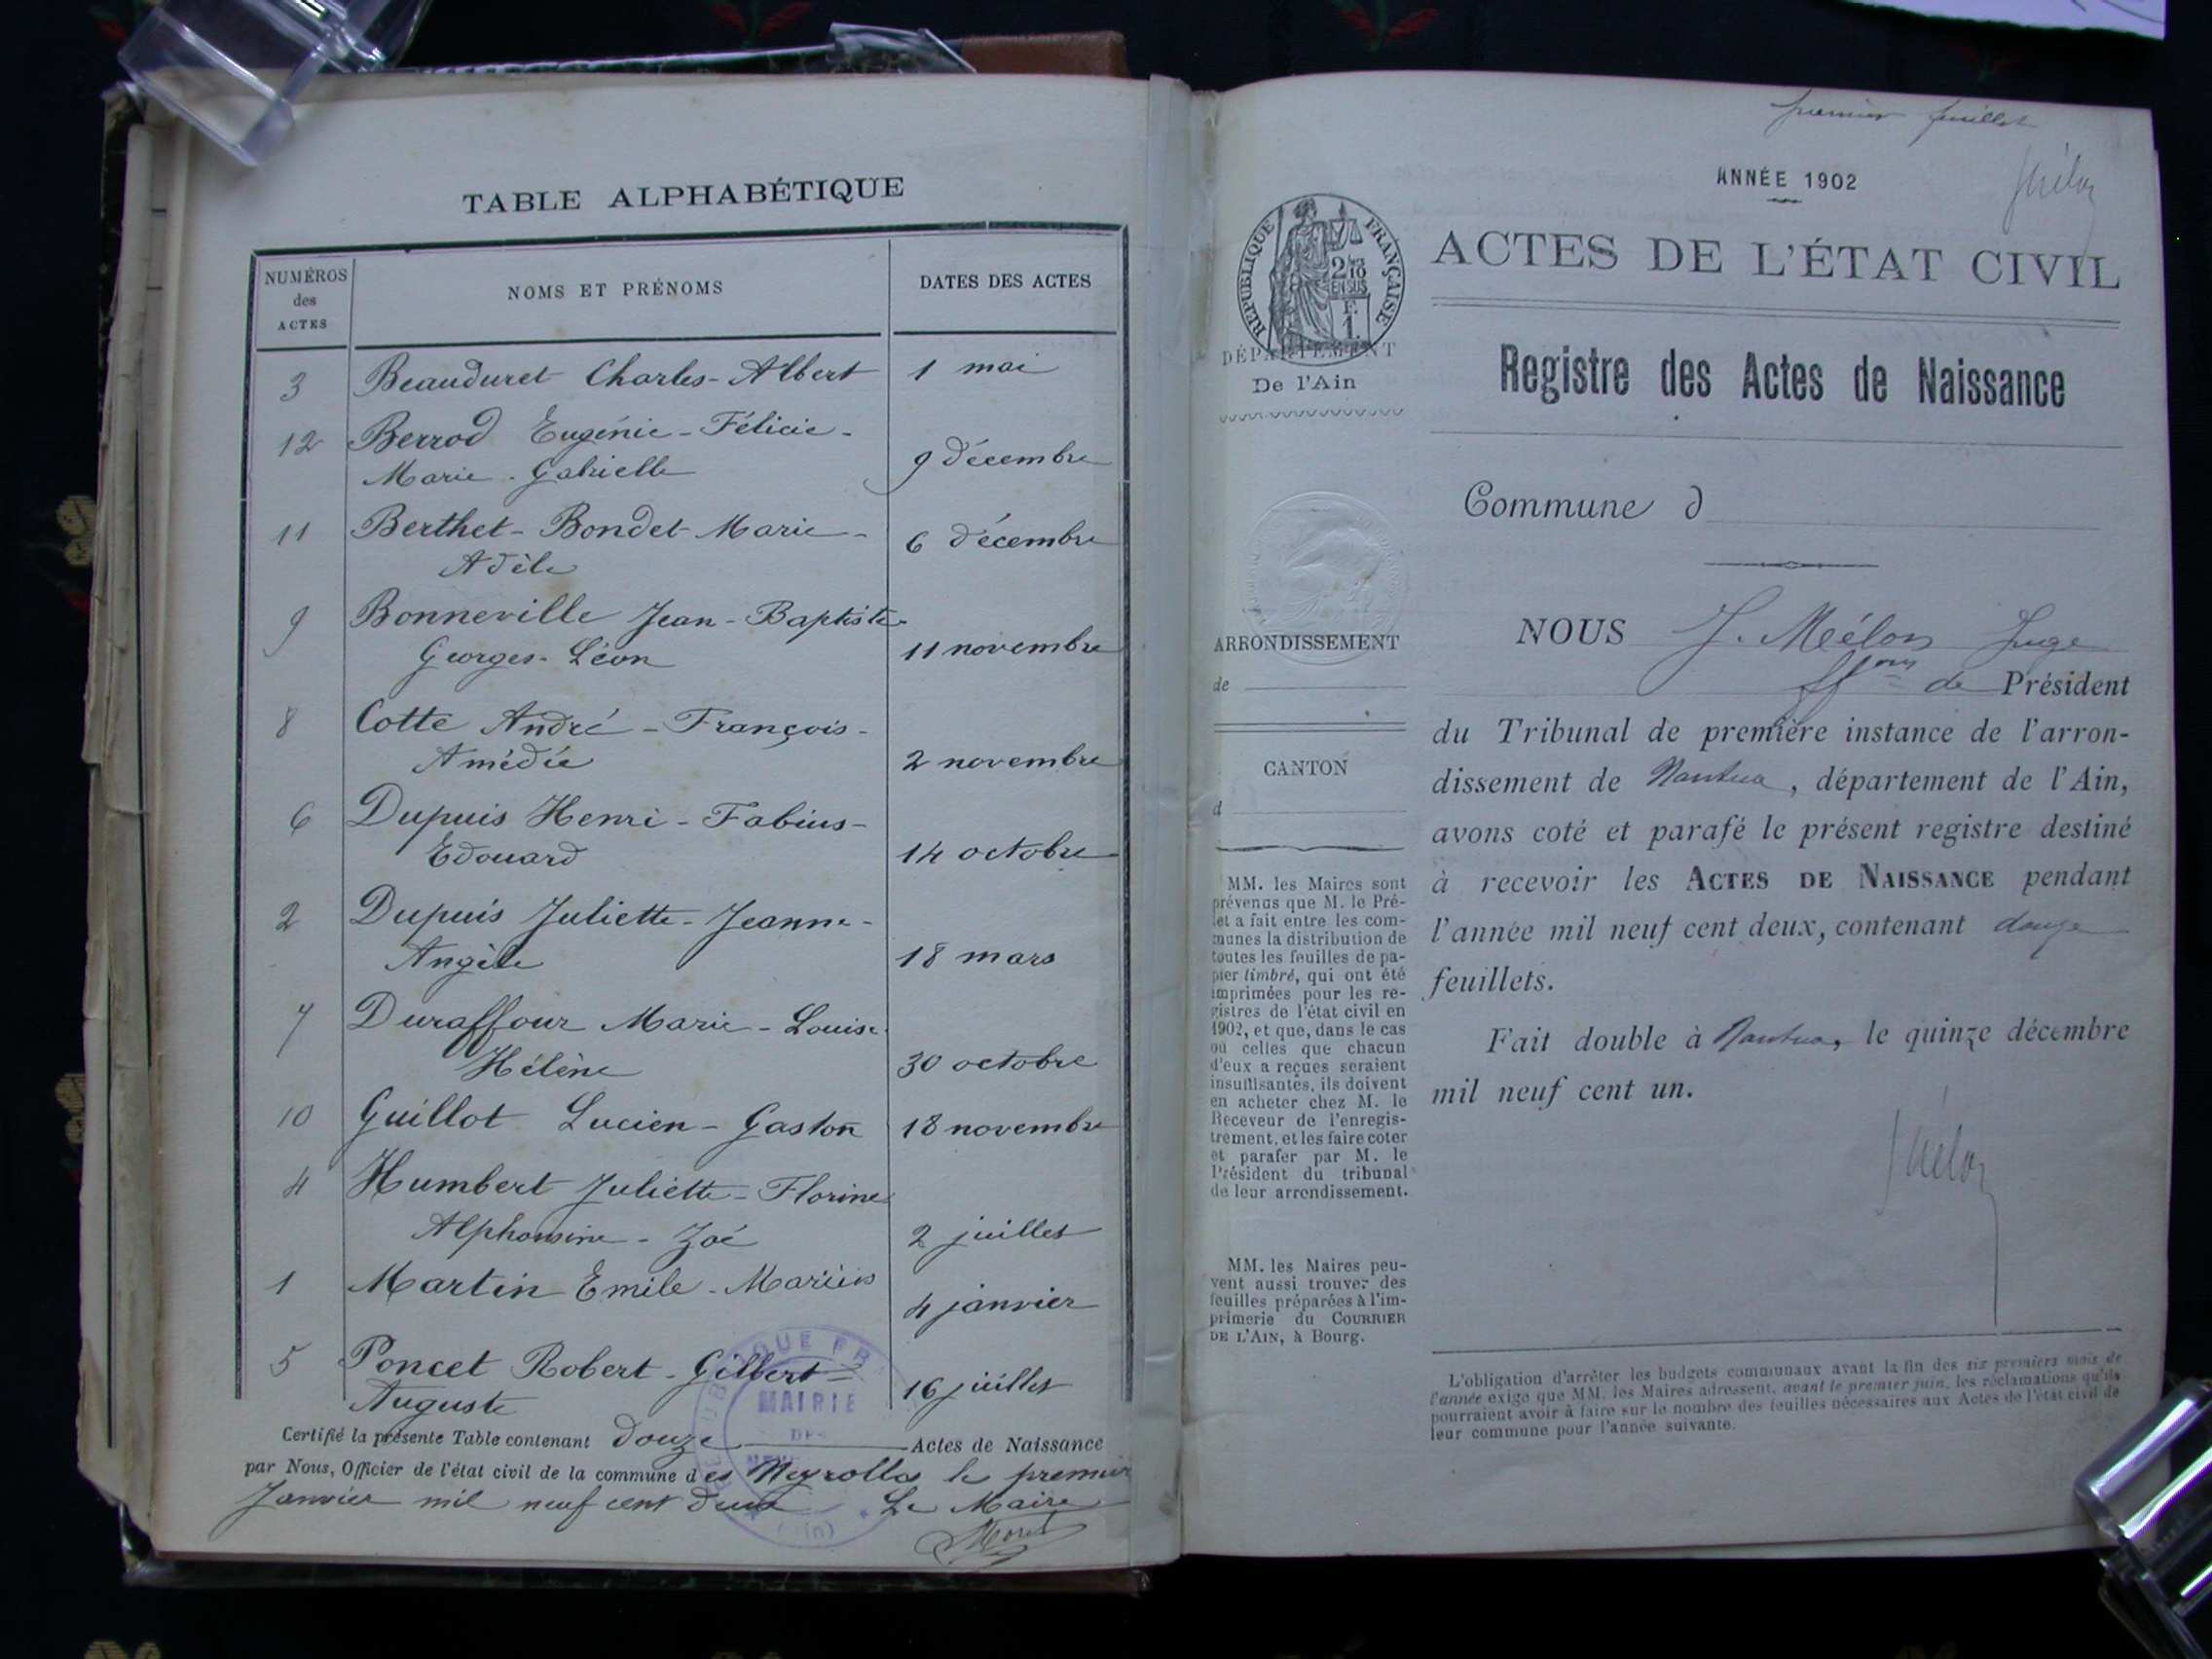 TABLE ALPHABÉTIQUE
NUMÉROS des ACTES
NOMS ET PRÉNOMS
DATES DES ACTES
3 Beauduret Charles-Albert 1 mai
12 Berrod Eugénie-Félicie-
Marie-Gabrielle 9 décembre
11 Berthet-Bondet Marie-
Adèle 6 décembre
9 Bonneville Jean-Baptiste-
Georges-Léon 11 novembre
8 Cotte André-François-
Amédée 2 novembre
6 Dupuis Henri-Fabius-
Edouard 14 octobre
2 Dupuis Juliette-Jeanne-
Angèle 18 mars
7 Duraffour Marie-Louise-
Hélène 30 octobre
10 Guillot Lucien-Gaston 18 novembre
4 Humbert Juliette-Florine
Alphonsine-Zoé 2 juillet
1 Martin Emile-Marius
4 janvier
5 Poncet Robert-Gilbert-
Auguste 16 juillet
MAIRIE
DES
Certifié la présente Table contenant douze Actes de Naissance
par Nous, Officier de l'état civil de la commune des Neyrolles le premier
Janvier mil neuf cent deux Le Maire
premier feuillet
ANNÉE 1902
RÉPUBLIQUE FRANÇAISE
2/10 EN SUS
F. 1
ACTES DE L'ÉTAT CIVIL
DÉPARTEMENT
De l'Ain
Registre des Actes de Naissance
Commune d
ARRONDISSEMENT
de
CANTON
d
MM. les Maires sont
prévenus que M. le Pré-
fet a fait entre les com-
munes la distribution de
toutes les feuilles de pa-
pier timbré, qui ont été
imprimées pour les re-
gistres de l'état civil en
1902, et que, dans le cas
où celles que chacun
d'eux a reçues seraient
insuffisantes, ils doivent
en acheter chez M. le
Receveur de l'enregis-
trement, et les faire coter
et parafer par M. le
Président du tribunal
de leur arrondissement.
MM. les Maires peu-
vent aussi trouver des
feuilles préparées à l'im-
primerie du COURRIER
DE L'AIN, à Bourg.
NOUS J. Mélon Juge
ff.ons de Président
du Tribunal de première instance de l'arron-
dissement de Nantua, département de l'Ain,
avons coté et parafé le présent registre destiné
à recevoir les ACTES DE NAISSANCE pendant
l'année mil neuf cent deux, contenant douze
feuillets.
Fait double à Nantua, le quinze décembre
mil neuf cent un.
L'obligation d'arrêter les budgets communaux avant la fin des six premiers mois de
l'année exige que MM. les Maires adressent, avant le premier juin, les réclamations qu'ils
pourraient avoir à faire sur le nombre des feuilles nécessaires aux Actes de l'état civil de
leur commune pour l'année suivante.